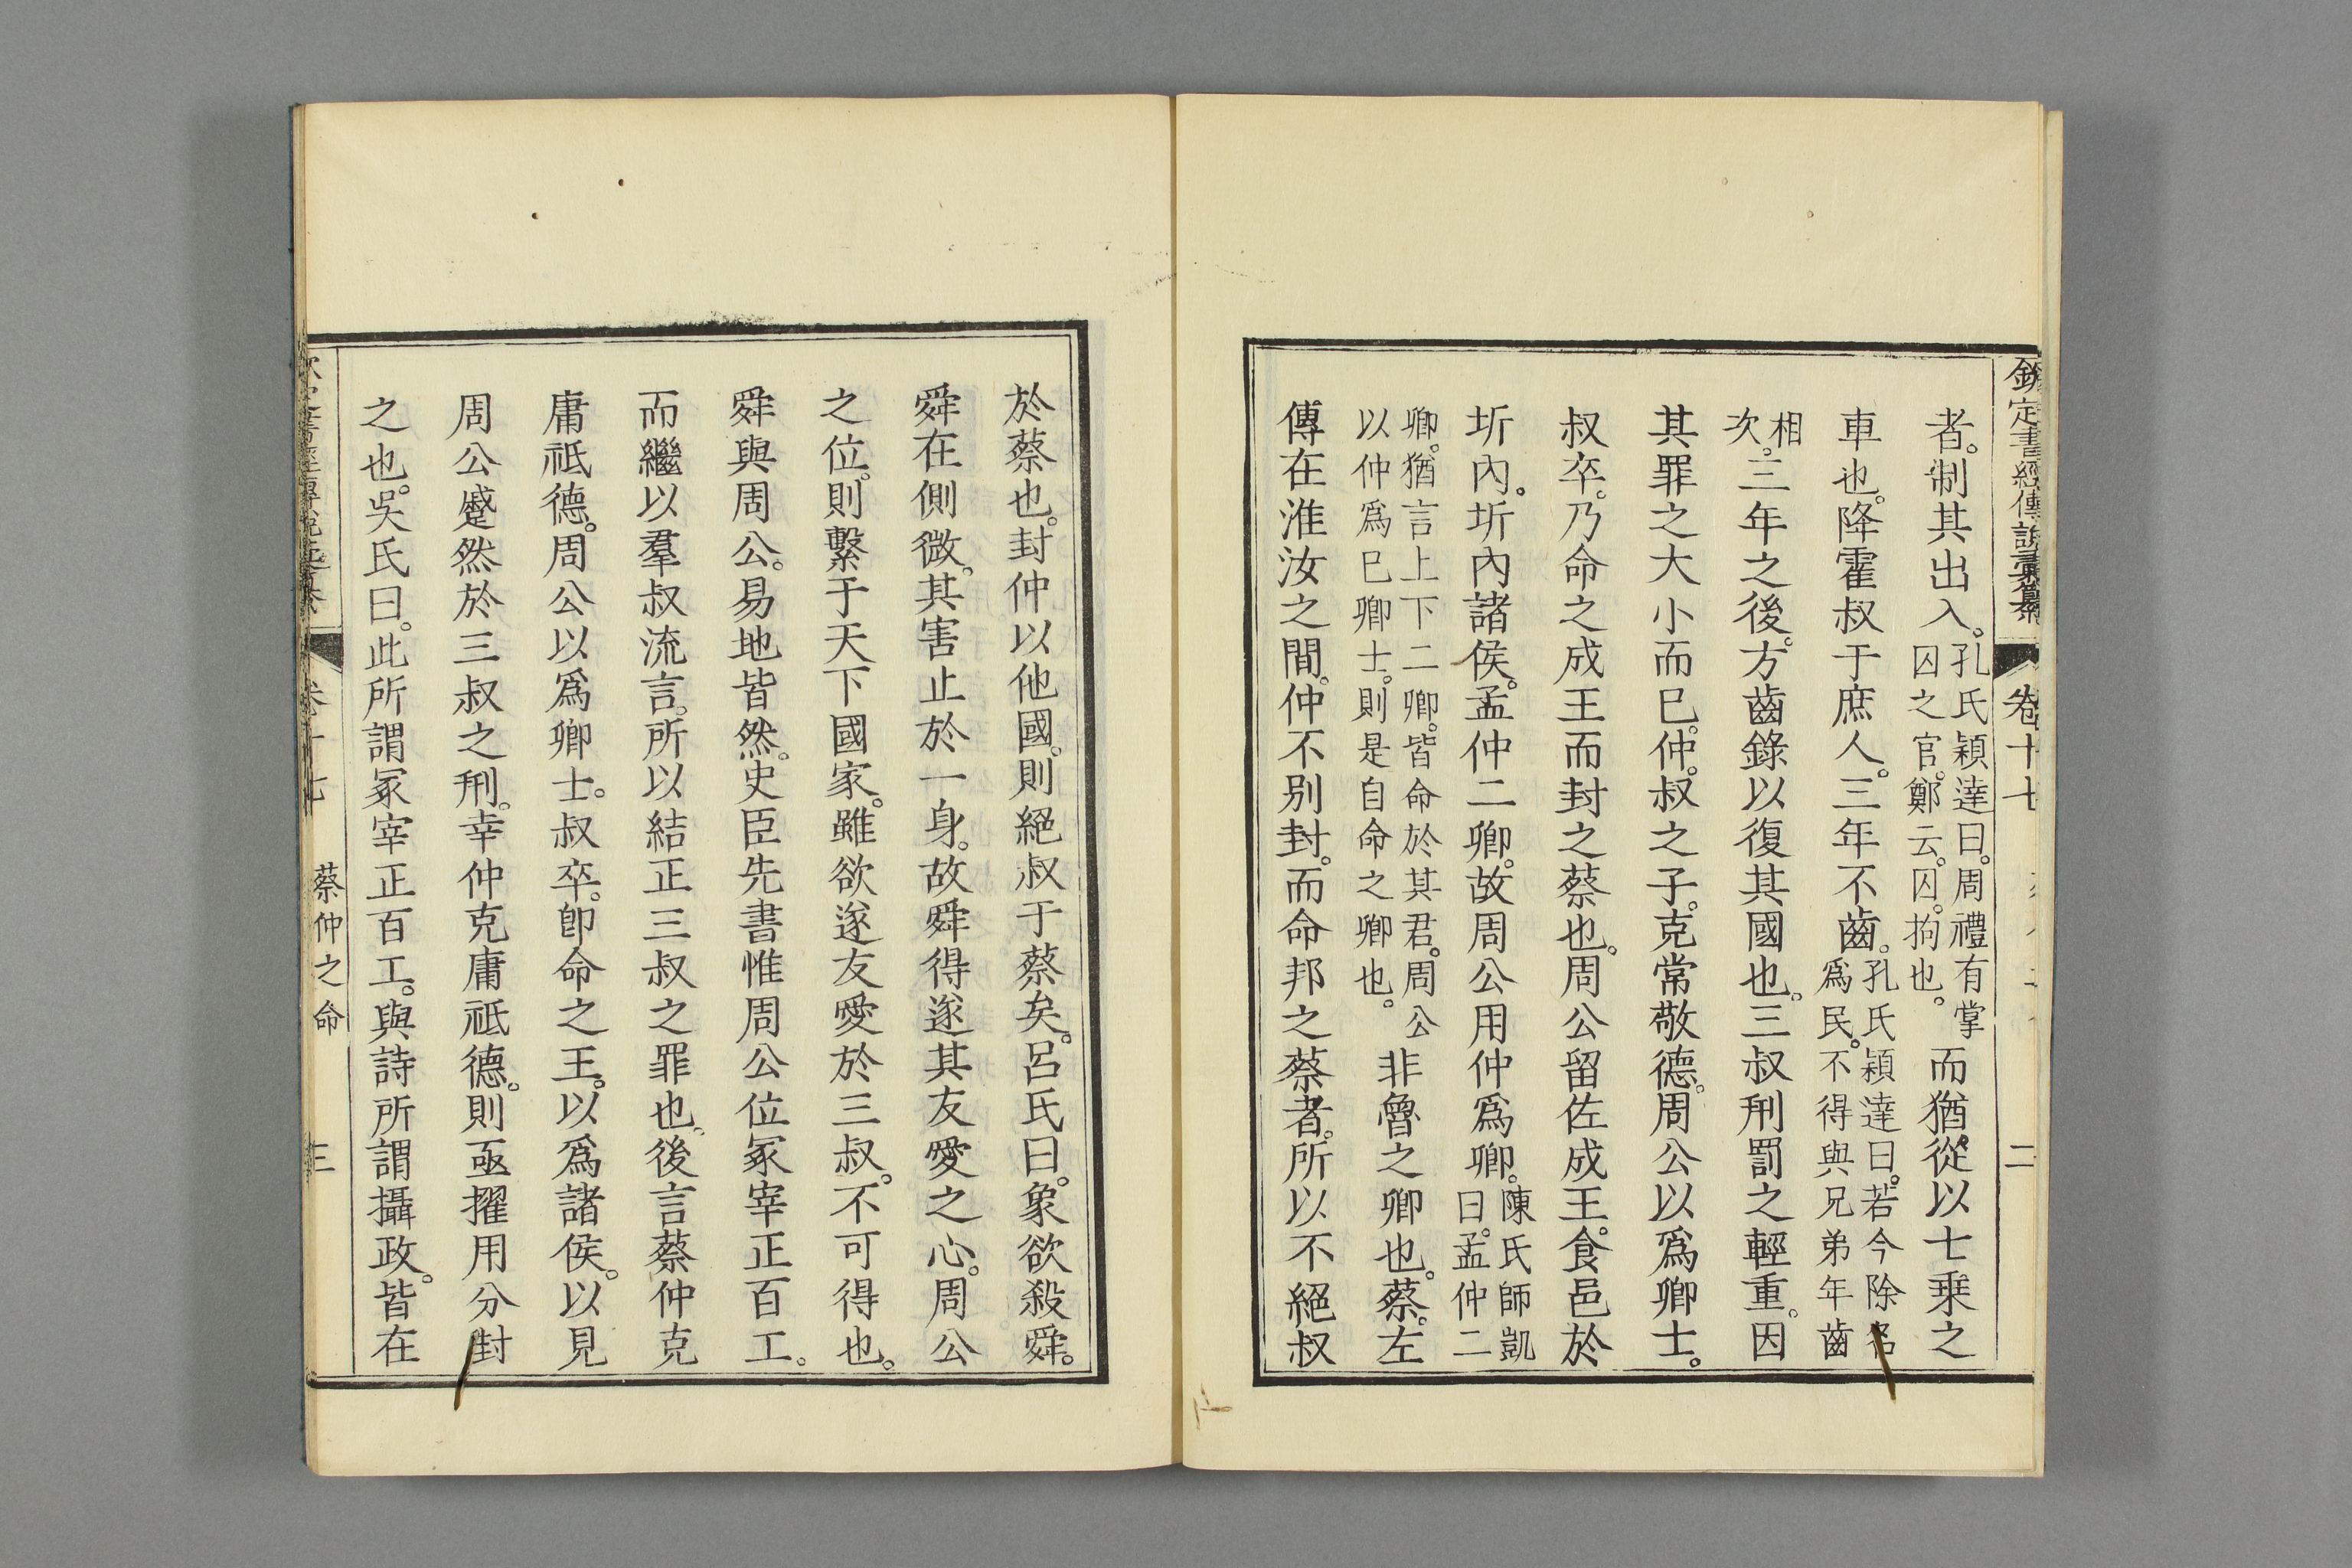 欽定書經傳說彙纂 卷十七 二
者。制其出入。孔氏穎達曰。周禮有掌囚之官。鄭云。囚。拘也。而猶從以七乗之
車也。降霍叔于庶人。三年不齒。孔氏穎達曰。若今除名爲民。不得與兄弟年齒
相次。三年之後。方齒錄以復其國也。三叔刑罰之輕重。因
其罪之大小而巳。仲。叔之子。克常敬德。周公以爲卿士。
叔卒。乃命之成王而封之蔡也。周公留佐成王。食邑於
圻內。圻內諸侯。孟仲二卿。故周公用仲爲卿。陳氏師凱曰。孟仲二
卿。猶言上下二卿。皆命於其君。周公以仲爲巳卿士。則是自命之卿也。非魯之卿也。蔡。左
傳在淮汝之間。仲不別封。而命邦之蔡者。所以不絕叔
於蔡也。封仲以他國。則絕叔于蔡矣。呂氏曰。象欲殺舜。
舜在側微。其害止於一身。故舜得遂其友愛之心。周公
之位。則繫于天下國家。雖欲遂友愛於三叔。不可得也。
舜與周公。易地皆然。史臣先書惟周公位冢宰正百工。
而繼以羣叔流言。所以結正三叔之罪也。後言蔡仲克
庸祗德。周公以爲卿士。叔卒。卽命之王。以爲諸侯。以見
周公蹙然於三叔之刑。幸仲克庸祗德。則亟擢用分封
之也。吳氏曰。此所謂冢宰正百工。與詩所謂攝政。皆在
蔡仲之命 三